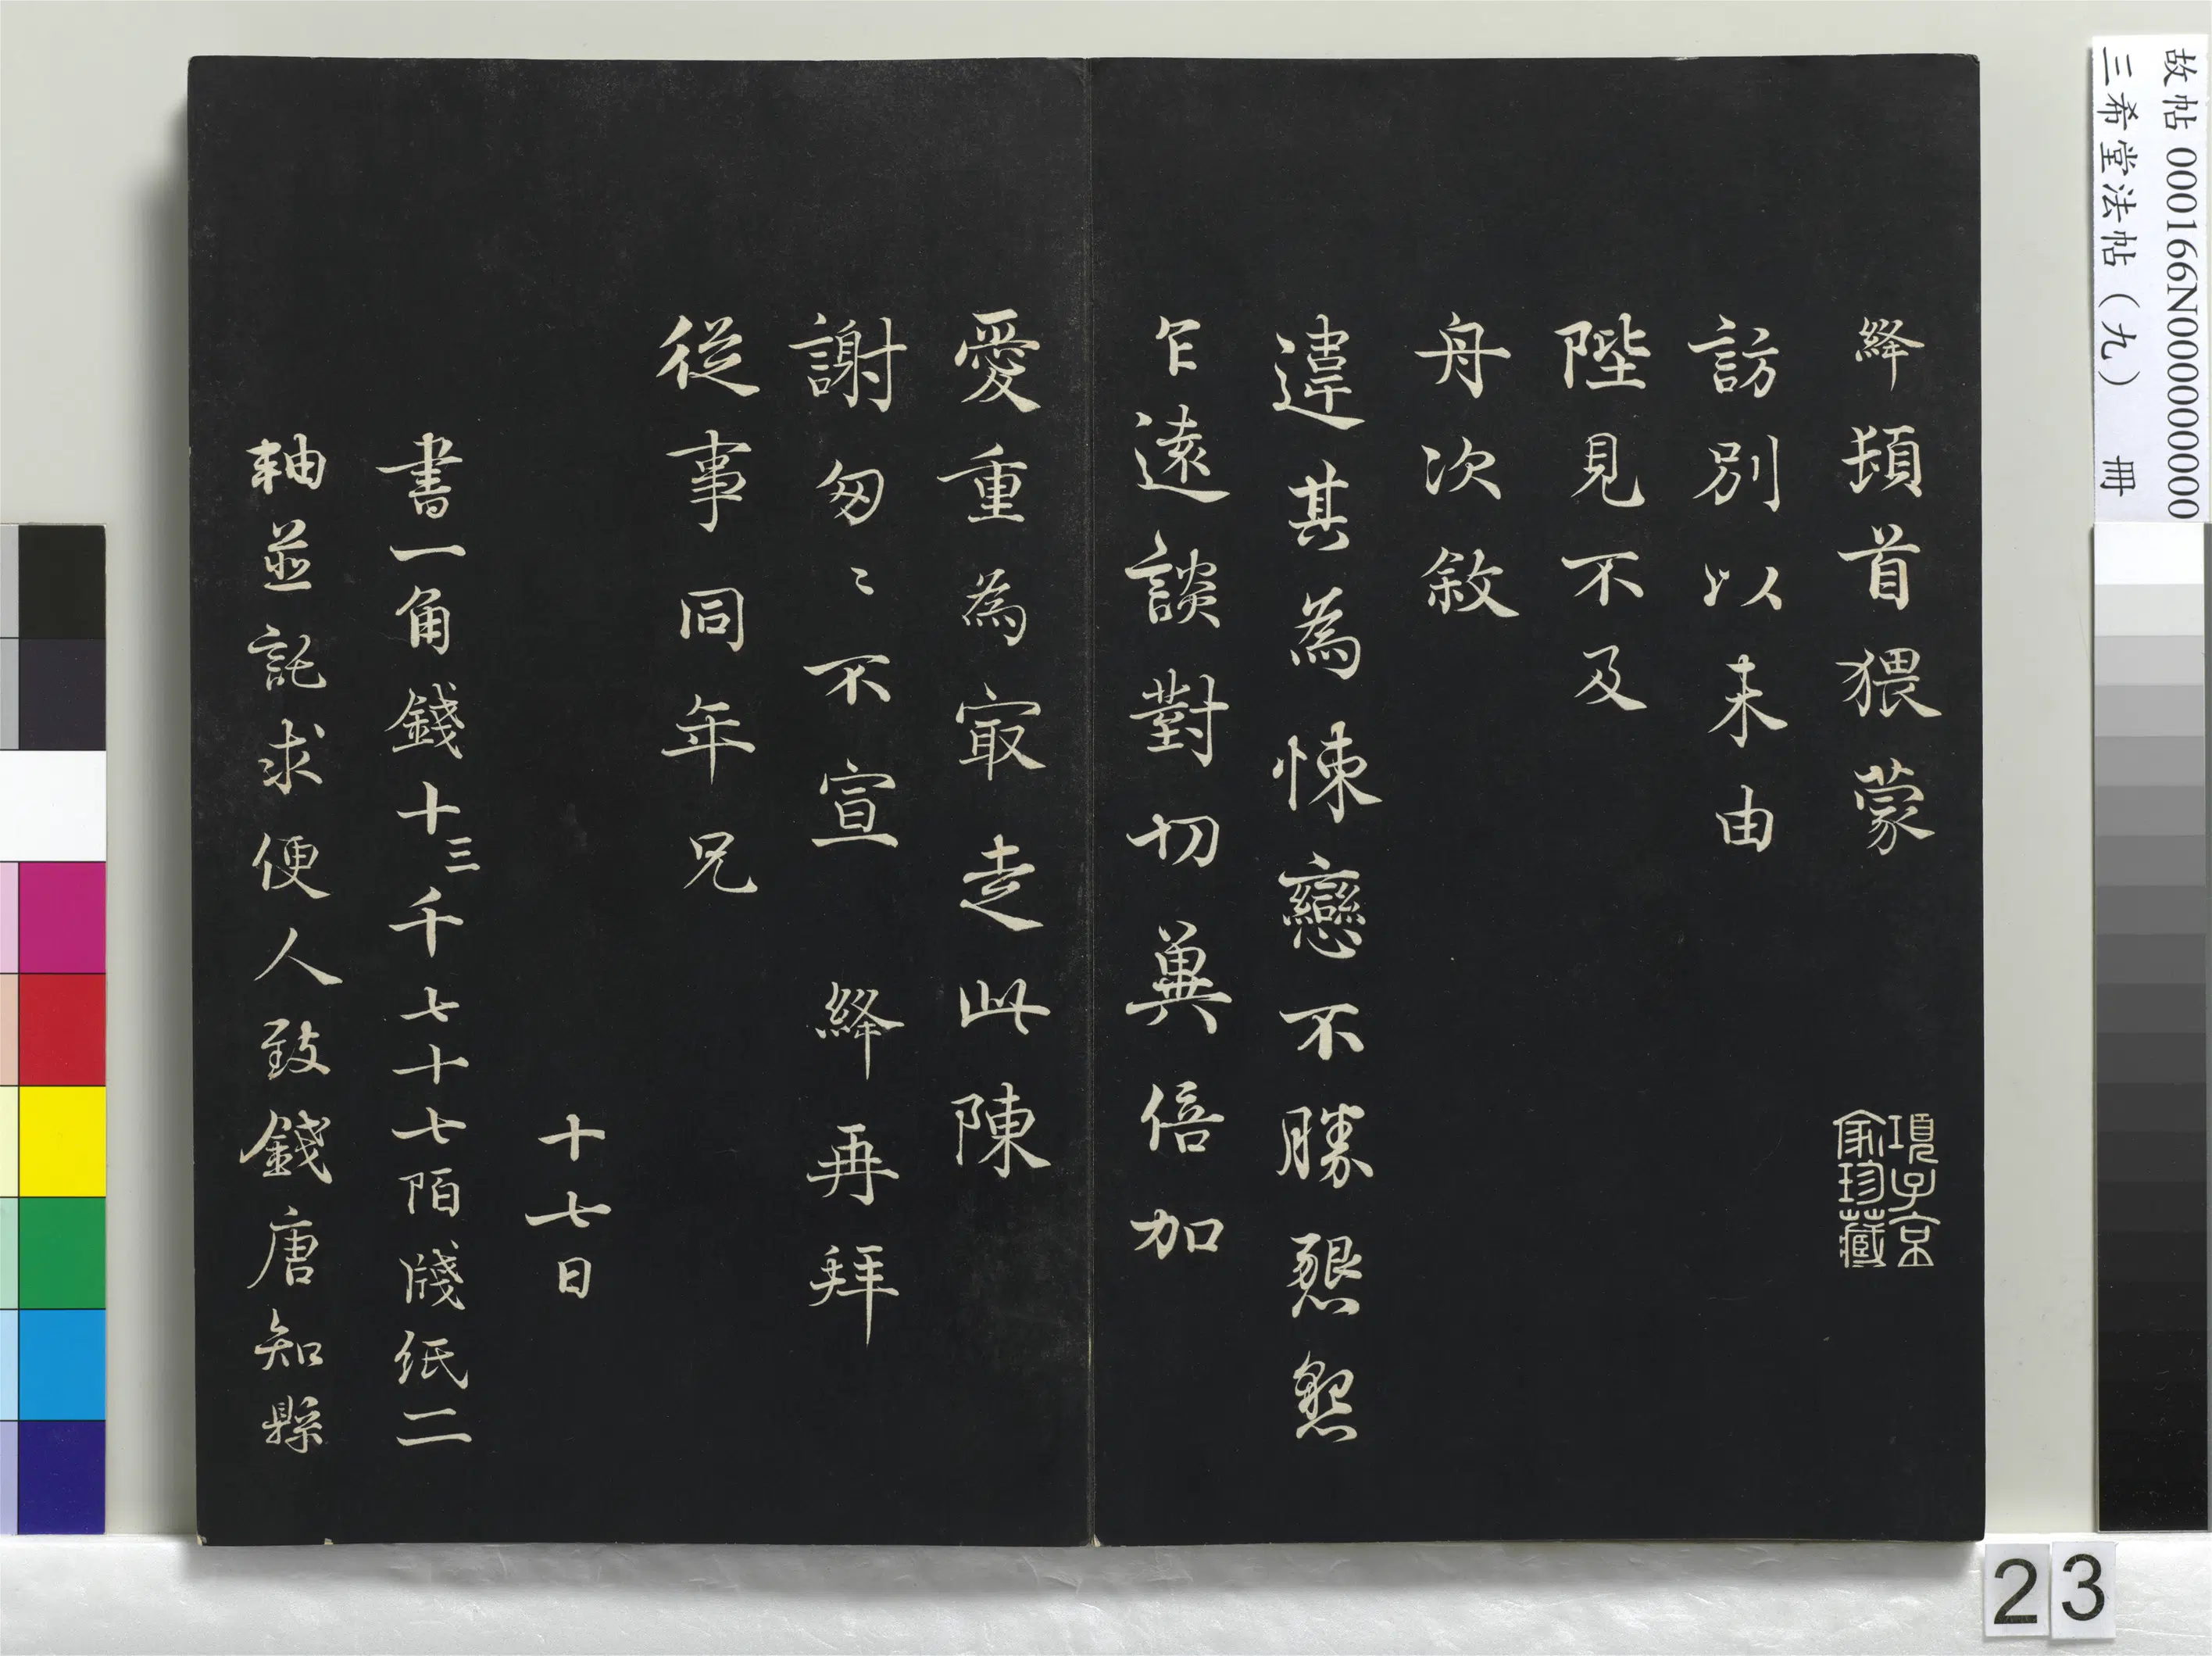 絳頓首猥蒙
訪別以未由
陛見不及
舟次敘
違其為悚戀不勝懇懇
乍遠談對切冀倍加
愛重為寂走此陳
謝匆〻不宣 絳再拜
從事同年兄
十七日
書一角錢十三千七十七陌牋紙二
軸並託求便人致錢唐知縣
項子京
家珍藏
故帖 000166N000000000
三希堂法帖（九） 冊
23